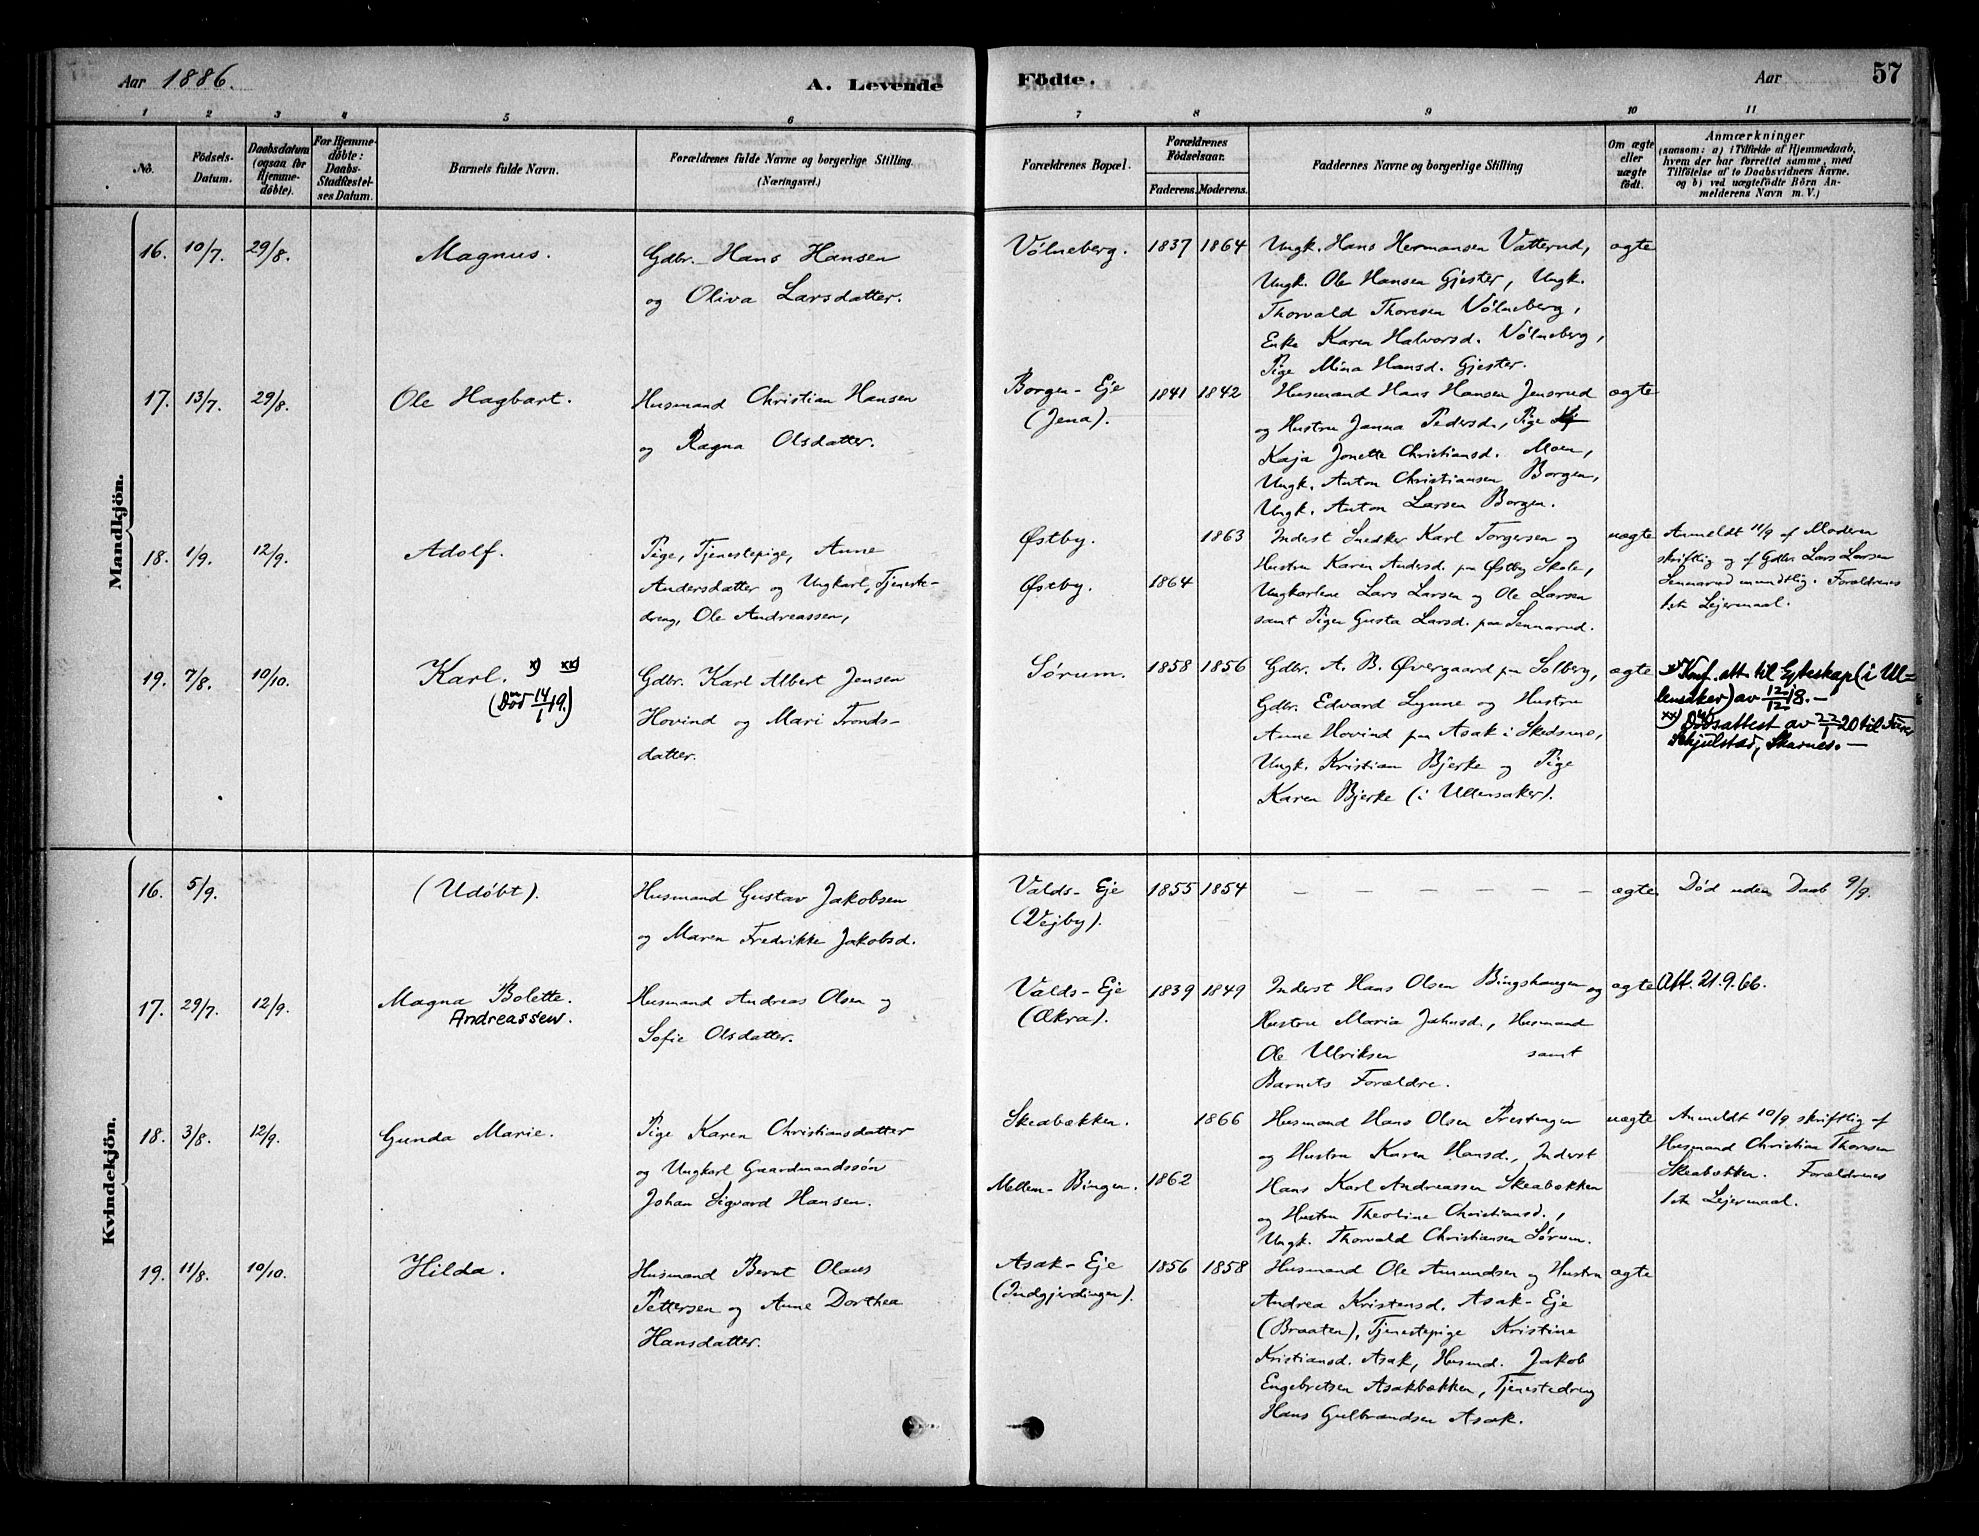 Aar 1886.
A. Levende
Födte.
Aar
57
1 2 3 4 5 6 7 8 9 10 11
No.
Födsels-
Datum.
Daabsdatum
(ogsaa for
Hjemme-
döbte).
For Hjemme-
döbte:
Daabs-
Stadfæstel-
ses Datum.
Barnets fulde Navn.
Forældrenes fulde Navne og borgerlige Stilling.
(Næringsvei.)
Forældrenes Bopæl.
Forældrenes
Födselsaar.
Faderens. Moderens.
Faddernes Navne og borgerlige Stilling
Om ægte
eller
uægte
födt.
Anmærkninger
(saasom: a) i Tilfælde af Hjemmedaab,
hvem der har forrettet samme, med
Tilföielse af to Daabsvidners Navne.
og b) ved uægtefödte Börn An-
melderens Navn m. V.)
Mandkjön.
16. 10/7. 29/8. Magnus.
Gdbr. Hans Hansen
og Oliva Larsdatter.
Völneberg. 1837 1864
Ungk. Hans Hermansen Vatterud,
Ungk. Ole Hansen Gjester, Ungk.
Thorvald Thoresen Völneberg,
Enke Karen Halvorsd. Völneberg,
Pige Mina Hansd. Gjester.
ægte
17. 13/7. 29/8. Ole Hagbart.
Husmand Christian Hansen
og Ragna Olsdatter.
Borgen-Eje
(Jena).
1841 1842
Husmand Hans Hansen Jensrud
og Hustru Janna Pedersd., Pige
Kaja Jonette Christiansd. Moen,
Ungk. Anton Christiansen Borgen,
Ungk. Anton Larsen Borgen.
ægte
18. 1/9. 12/9. Adolf.
Pige, Tjenestepige, Anne
Andersdatter og Ungkarl, Tjeneste-
dreng, Ole Andreassen,
Østby. 1863
Østby. 1864
Inderst Snedker Karl Torgersen og
Hustru Karen Andersd. paa Østby Skole,
Ungkarlene Lars Larsen og Ole Larsen
samt Pigen Gusta Larsd. paa Sennerud.
uægte
Anmeldt 11/9 af Moderen
skriftlig og af Gdbr. Lars Larsen
Sennerud mundtlig. Forældrenes
1ste Lejermaal.
19. 7/8. 10/10. Karl. x) xx)
(Död 14/1 19.)
Gdbr. Karl Albert Jensen
Hovind og Mari Tronds-
datter.
Sørum. 1858 1856
Gdbr. A. B. Øvergaard paa Solberg,
Gdbr. Edvard Lynne og Hustru
Anne Hovind paa Asak i Skedsmo,
Ungk. Kristian Bjerke og Pige
Karen Bjerke (i Ullensaker).
ægte
x) Konf. att. til Egteskap (i Ul=
lensaker) av 12/12 18. —
xx) Dødsattest av 22/1 20 til
Skjulstad, Skarnes. —
Kvindekjön.
16. 5/9. (Udöbt).
Husmand Gustav Jakobsen
og Maren Fredrikke Jakobsd.
Valds-Eje
(Vejby).
1855 1854
— — — — — — —
ægte
Död uden Daab 9/9.
17. 29/7. 12/9. Magna Bolette.
Andreassen.
Husmand Andreas Olsen og
Sofie Olsdatter.
Valds-Eje
(Ækra).
1839 1849
Inderst Hans Olsen Bingshaugen og
Hustru Maria Jahnsd., Husmand
Ole Ulriksen samt
Barnets Forældre.
ægte
Att. 21.9.66.
18. 3/8. 12/9. Gunda Marie.
Pige Karen Christiansdatter
og Ungkarl Gaardmandssön
Johan Sigvard Hansen.
Skeabækken. 1866
Mellem-Bingen. 1862
Husmand Hans Olsen Prestengen
og Hustru Karen Hansd., Inderst
Hans Karl Andreassen Skeabækken
og Hustru Theoline Christiansd.,
Ungk. Thorvald Christiansen Sørum.
uægte
Anmeldt 10/9 skriftlig af
Husmand Christian Thoresen
Skeabækken. Forældrenes
1ste Lejermaal.
19. 11/8. 10/10. Hilda.
Husmand Bernt Olaus
Pettersen og Anne Dorthea
Hansdatter.
Asak-Eje
(Indgjerdingen).
1856 1858
Husmand Ole Amundsen og Hustru
Andrea Kristensd. Asak-Eje
(Braaten), Tjenestepige Kristine
Kristiansd. Asak, Husmd. Jakob
Engebretsen Asakbækken, Tjenestedreng
Hans Gulbrandsen Asak.
ægte